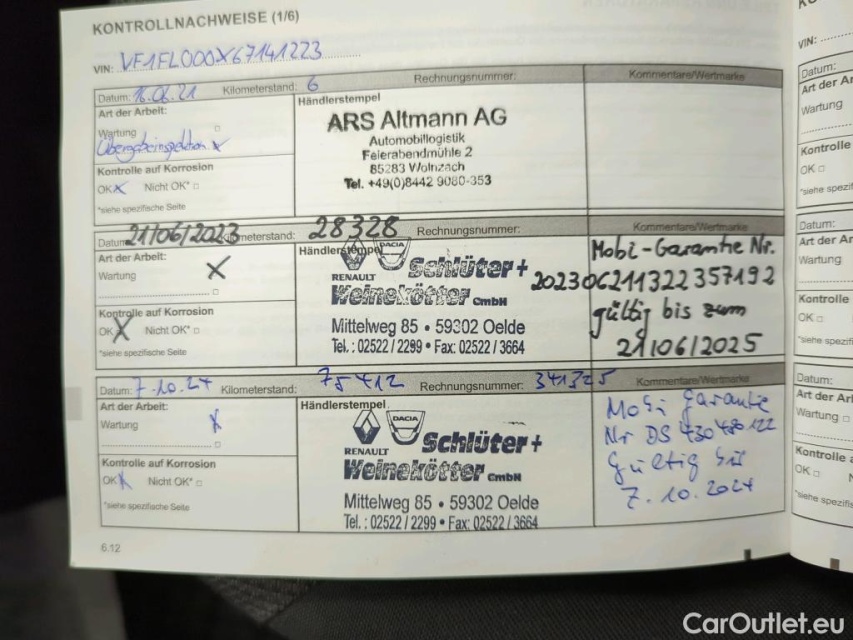 KONTROLLNACHWEISE (1/6)
VIN: VF1FL000X67141223
Datum: 16.06.21 Kilometerstand: 6 Rechnungsnummer: Kommentare/Wertmarke
Art der Arbeit:
Wartung
Übergabeinspektion x
Kontrolle auf Korrosion
OK x Nicht OK*
*siehe spezifische Seite
Händlerstempel
ARS Altmann AG
Automobillogistik
Feierabendmühle 2
85283 Wolnzach
Tel. +49(0)8442 9080-353
Datum: 21/06/2023 Kilometerstand: 28328 Rechnungsnummer: Kommentare/Wertmarke
Art der Arbeit:
Wartung X
Kontrolle auf Korrosion
OK X Nicht OK*
*siehe spezifische Seite
Händlerstempel
RENAULT
DACIA
Schlüter+
Weinekötter GmbH
Mittelweg 85 • 59302 Oelde
Tel.: 02522/2299 • Fax: 02522/3664
Mobi-Garantie Nr.
202306211322357192
gültig bis zum
21/06/2025
Datum: 7.10.24 Kilometerstand: 75412 Rechnungsnummer: 341325 Kommentare/Wertmarke
Art der Arbeit:
Wartung x
Kontrolle auf Korrosion
OK x Nicht OK*
*siehe spezifische Seite
Händlerstempel
RENAULT
DACIA
Schlüter+
Weinekötter GmbH
Mittelweg 85 • 59302 Oelde
Tel.: 02522/2299 • Fax: 02522/3664
Mobi Garantie
Nr DS
Gültig bis
7.10.2024
6.12
VIN:
Datum:
Art der Ar
Wartung
Kontrolle
OK
*siehe spezif
Datum:
Art der Ar
Wartung
Kontrolle
OK
*siehe spezif
Datum:
Art der Ar
Wartung
Kontrolle a
OK
*siehe spezifis
CarOutlet.eu